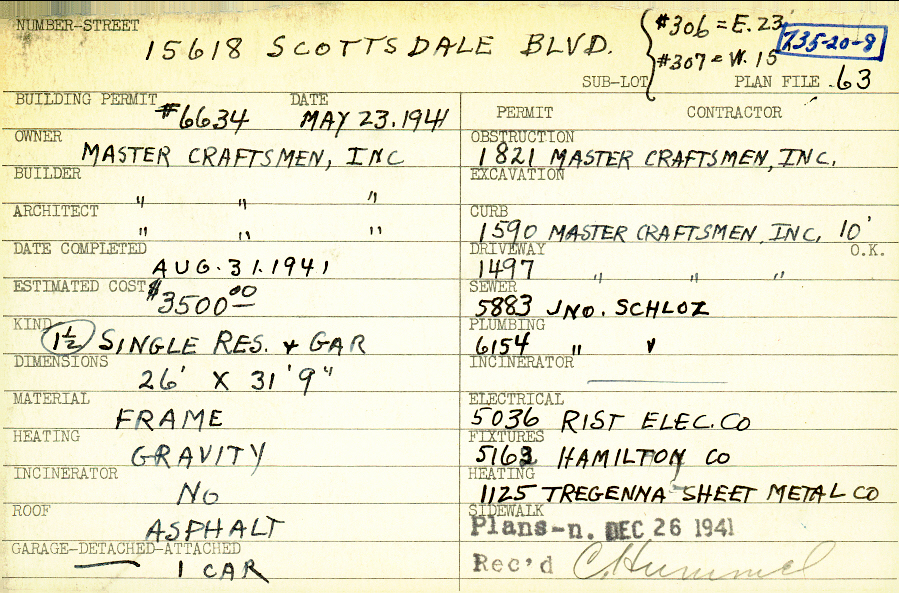 NUMBER-STREET
15618 SCOTTSDALE BLVD.
#306 = E. 23'
#307 = W. 15
735-20-8
SUB-LOT
PLAN FILE 63
BUILDING PERMIT #6634 DATE MAY 23.1941
OWNER MASTER CRAFTSMEN, INC
BUILDER " " "
ARCHITECT " " "
DATE COMPLETED AUG. 31. 1941
ESTIMATED COST $3500.00
KIND 1½ SINGLE RES. & GAR
DIMENSIONS 26' X 31'9"
MATERIAL FRAME
HEATING GRAVITY
INCINERATOR NO
ROOF ASPHALT
GARAGE-DETACHED-ATTACHED
1 CAR
PERMIT CONTRACTOR
OBSTRUCTION
1821 MASTER CRAFTSMEN, INC.
EXCAVATION
CURB
1590 MASTER CRAFTSMEN, INC, 10'
DRIVEWAY O.K.
1497 " " "
SEWER
5883 JNO. SCHLOZ
PLUMBING
6154 " "
INCINERATOR
ELECTRICAL
5036 RIST ELEC. CO
FIXTURES
5163 HAMILTON CO
HEATING
1125 TREGENNA SHEET METAL CO
SIDEWALK
Plans-n. DEC 26 1941
Rec'd C. Hummel